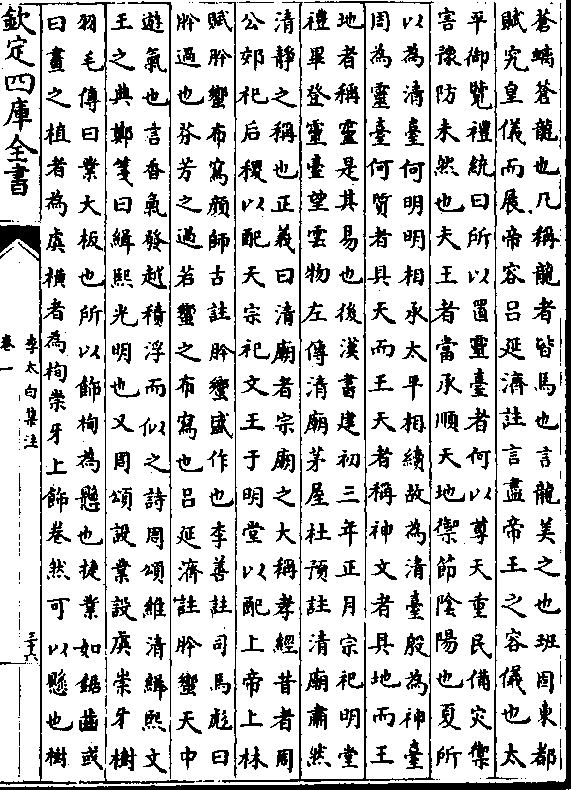 蒼螭蒼龍也凡稱龍者皆馬也言龍美之也班固東都
賦究皇儀而展帝容呂延濟註言盡帝王之容儀也太
平御覽禮統曰所以置靈臺者何以尊天重民備災禦
害豫防未然也夫王者當承順天地禦節陰陽也夏所
以為清臺何明明相承太平相續故為清臺殷為神臺
周為靈臺何質者具天而王天者稱神文者具地而王
地者稱靈是其易也後漢書建初三年正月宗祀明堂
禮畢登靈臺望雲物左傳清廟茅屋杜預註清廟肅然
清靜之稱也正義曰清廟者宗廟之大稱孝經昔者周
公郊祀后稷以配天宗祀文王于明堂以配上帝上林
賦肸蠁布寫顔師古註肸蠁盛作也李善註司馬彪曰
肸過也芬芳之過若蠁之布寫也呂延濟註肸蠁天中
遊氣也言香氣發越積浮而似之詩周頌維清緝熙文
王之典鄭箋曰緝熙光明也又周頌設業設虡崇牙樹
羽毛傳曰業大板也所以飾栒為懸也捷業如鋸齒或
曰畫之植者為虡橫者為栒崇牙上飾卷然可以懸也樹
欽定四庫全書
李太白集注
卷一
三十六